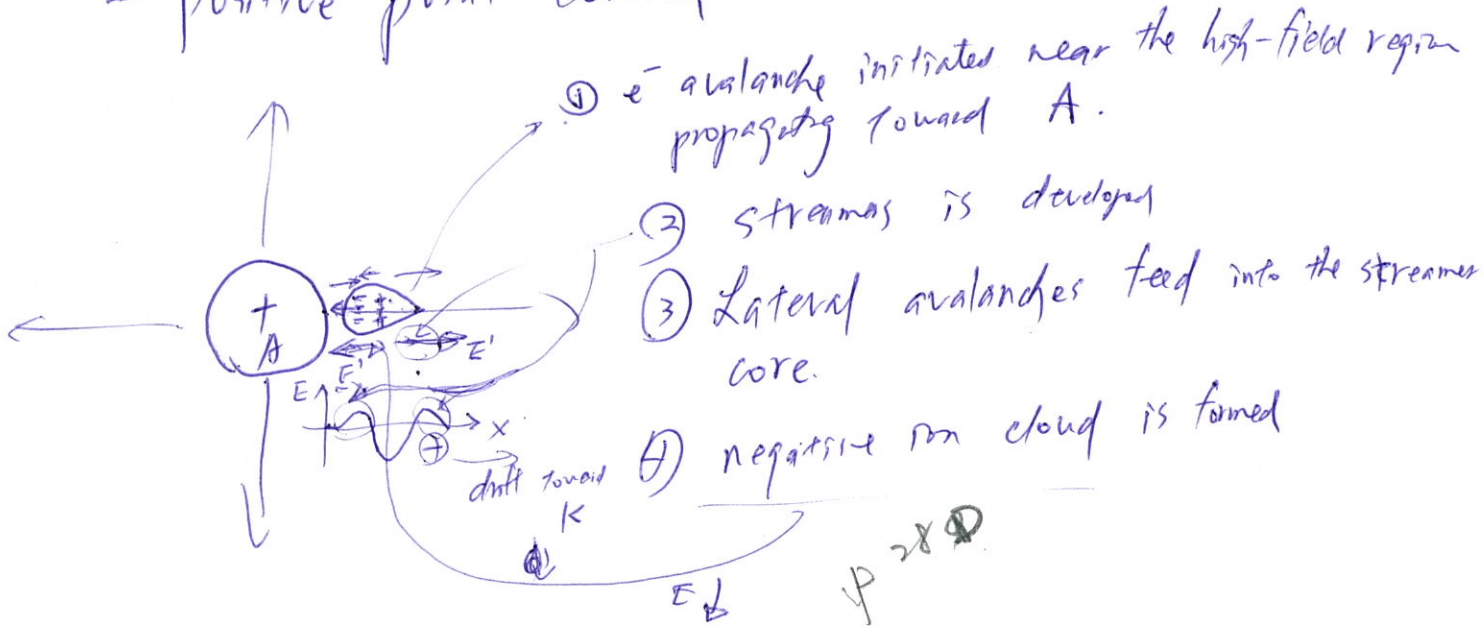 positive point
① e⁻ avalanche initiated near the high-field region
propagatg toward A.
② streamers is developed
③ Lateral avalanches feed into the streamer
core.
④ negative ion cloud is formed
+
A
E'
E'
E
x
+
drift toward
K
E↓
p 28